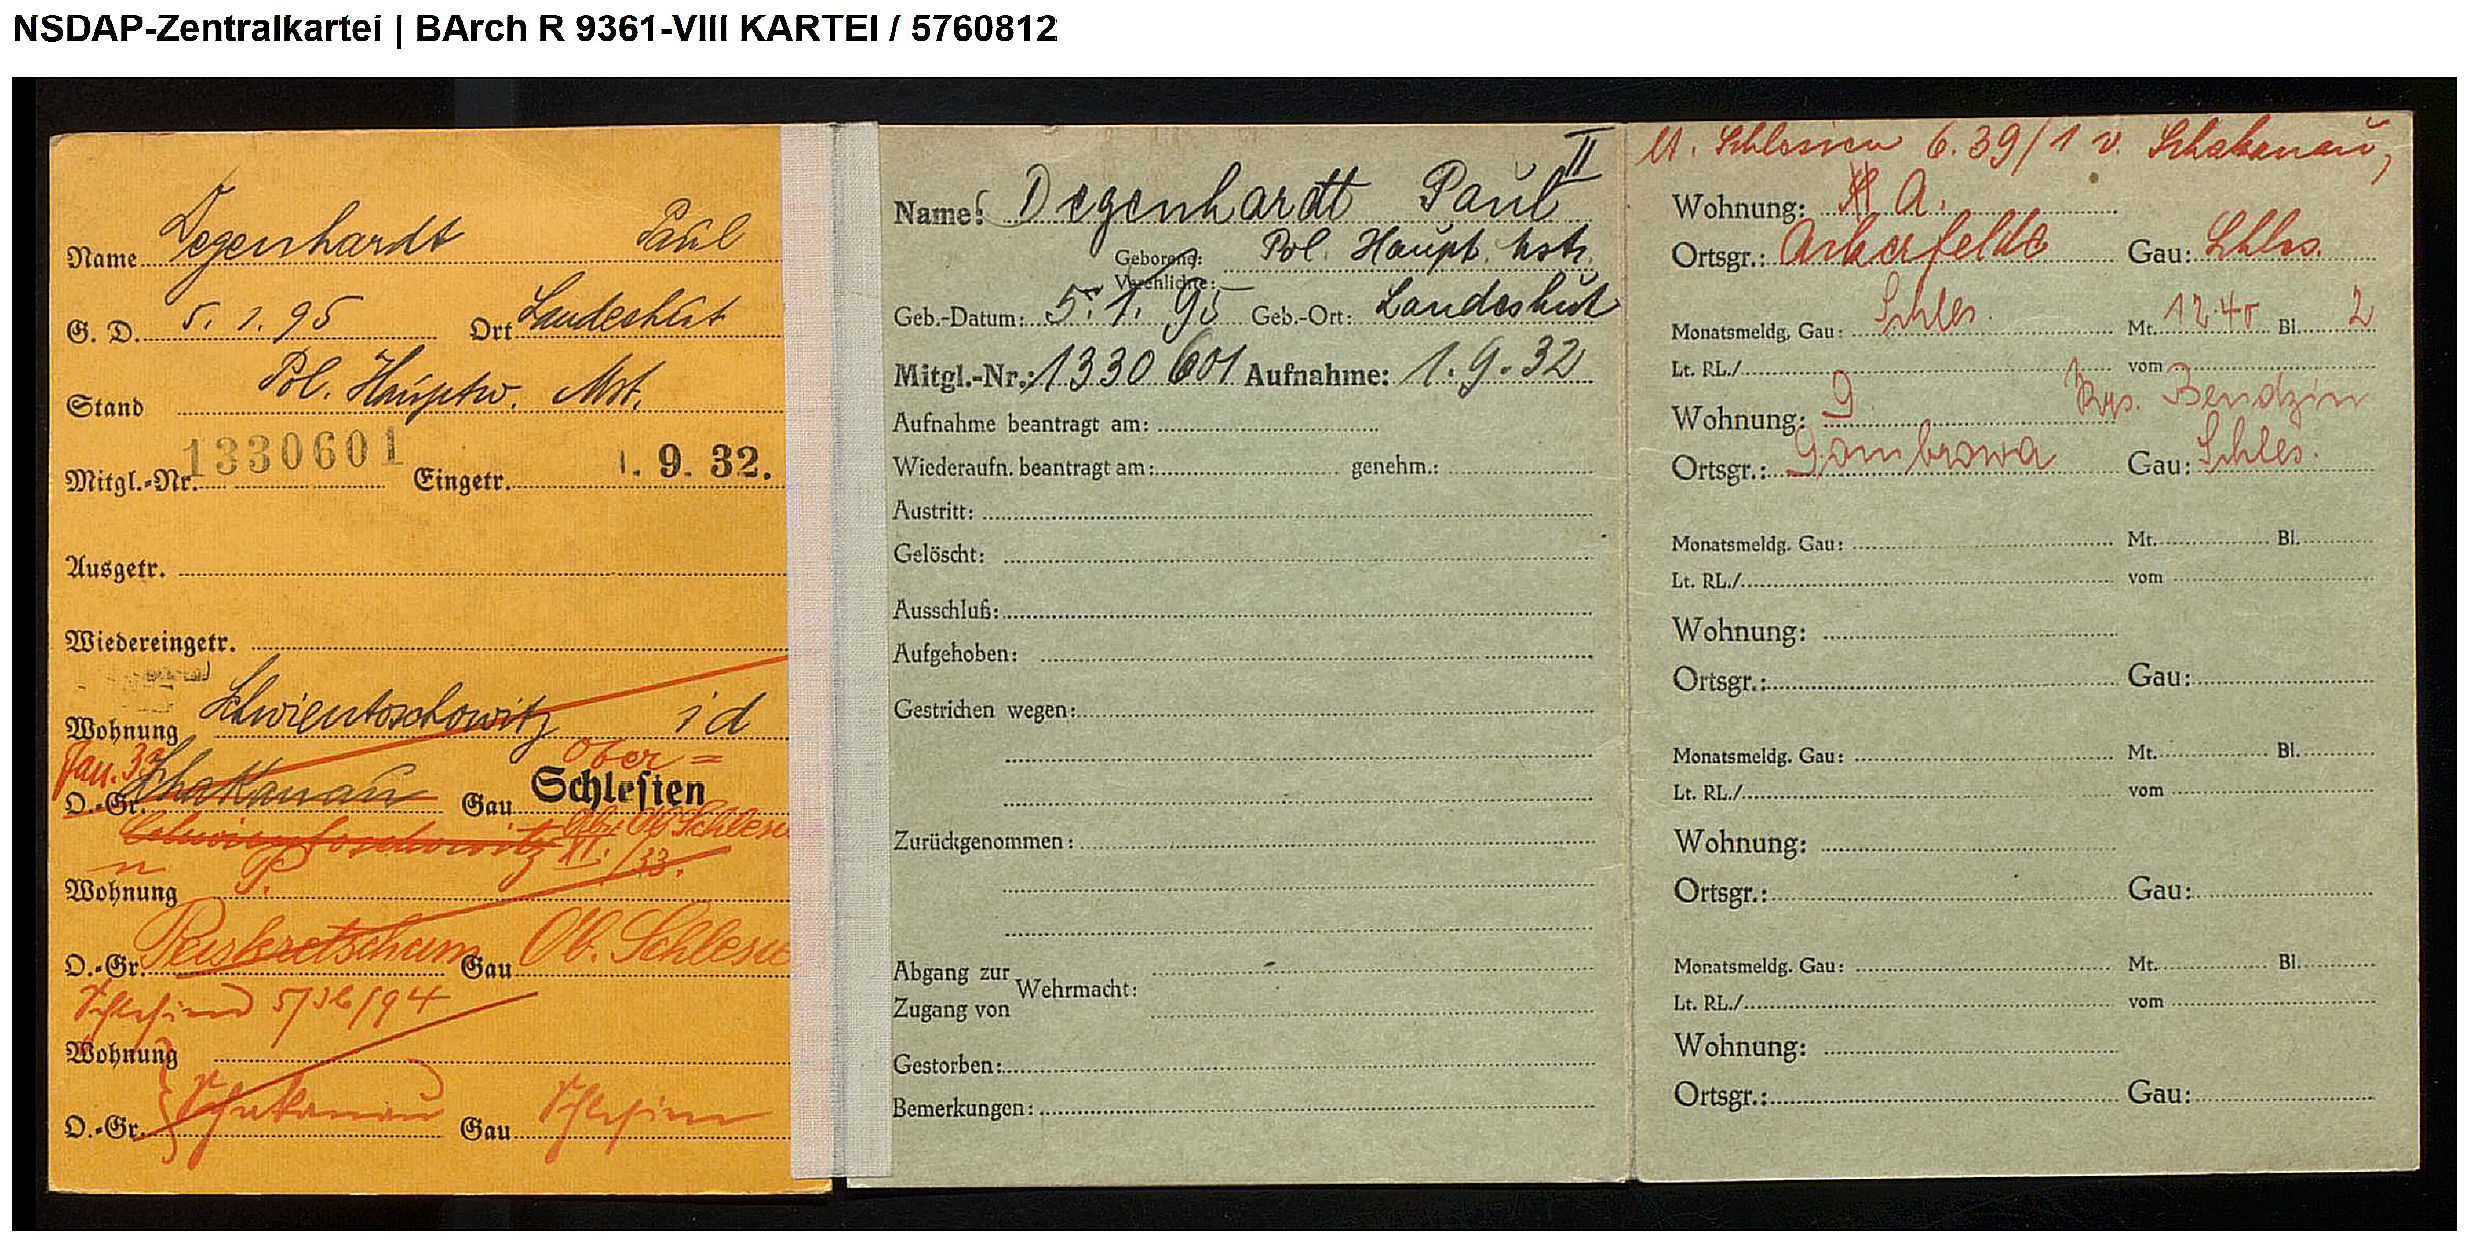 NSDAP-Zentralkartei | BArch R 9361-VIII KARTEI / 5760812
Name Degenhardt Paul
G. D. 5. 1. 95 Ort Landeshut
Stand Pol. Hauptw. Mst.
Mitgl.-Nr. 1330601 Eingetr. 1. 9. 32.
Ausgetr.
Wiedereingetr.
Wohnung Schwientoschowitz i d
Jan. 33 Ober=
O.-Gr. Schakanau Gau Schlesien
Schwientoschowitz Ob. Schlesi
XI./33.
Wohnung P.
O.-Gr. Peiskretscham Gau Ob. Schlesie
Schlesien
Wohnung
O.-Gr. Schakanau Gau Schlesien
II
Name: Degenhardt Paul
Geborene: Pol. Haupt.
Verehlichte:
Geb.-Datum: 5. 1. 95 Geb.-Ort: Landeshut
Mitgl.-Nr.: 1330601 Aufnahme: 1. 9. 32
Aufnahme beantragt am:
Wiederaufn. beantragt am: genehm.:
Austritt:
Gelöscht:
Ausschluß:
Aufgehoben:
Gestrichen wegen:
Zurückgenommen:
Abgang zur
Wehrmacht:
Zugang von
Gestorben:
Bemerkungen:
lt. Schlesien 6.39/1 v. Schakanau,
Wohnung: A.
Ortsgr.: Gau: Schles.
Monatsmeldg. Gau: Schles. Mt. 12.40 Bl. 2
Lt. RL./ vom
Wohnung: G. Krs. Bendzin
Ortsgr.: Gombrowa Gau: Schles.
Monatsmeldg. Gau: Mt. Bl.
Lt. RL./ vom
Wohnung:
Ortsgr.: Gau:
Monatsmeldg. Gau: Mt. Bl.
Lt. RL./ vom
Wohnung:
Ortsgr.: Gau:
Monatsmeldg. Gau: Mt. Bl.
Lt. RL./ vom
Wohnung:
Ortsgr.: Gau: